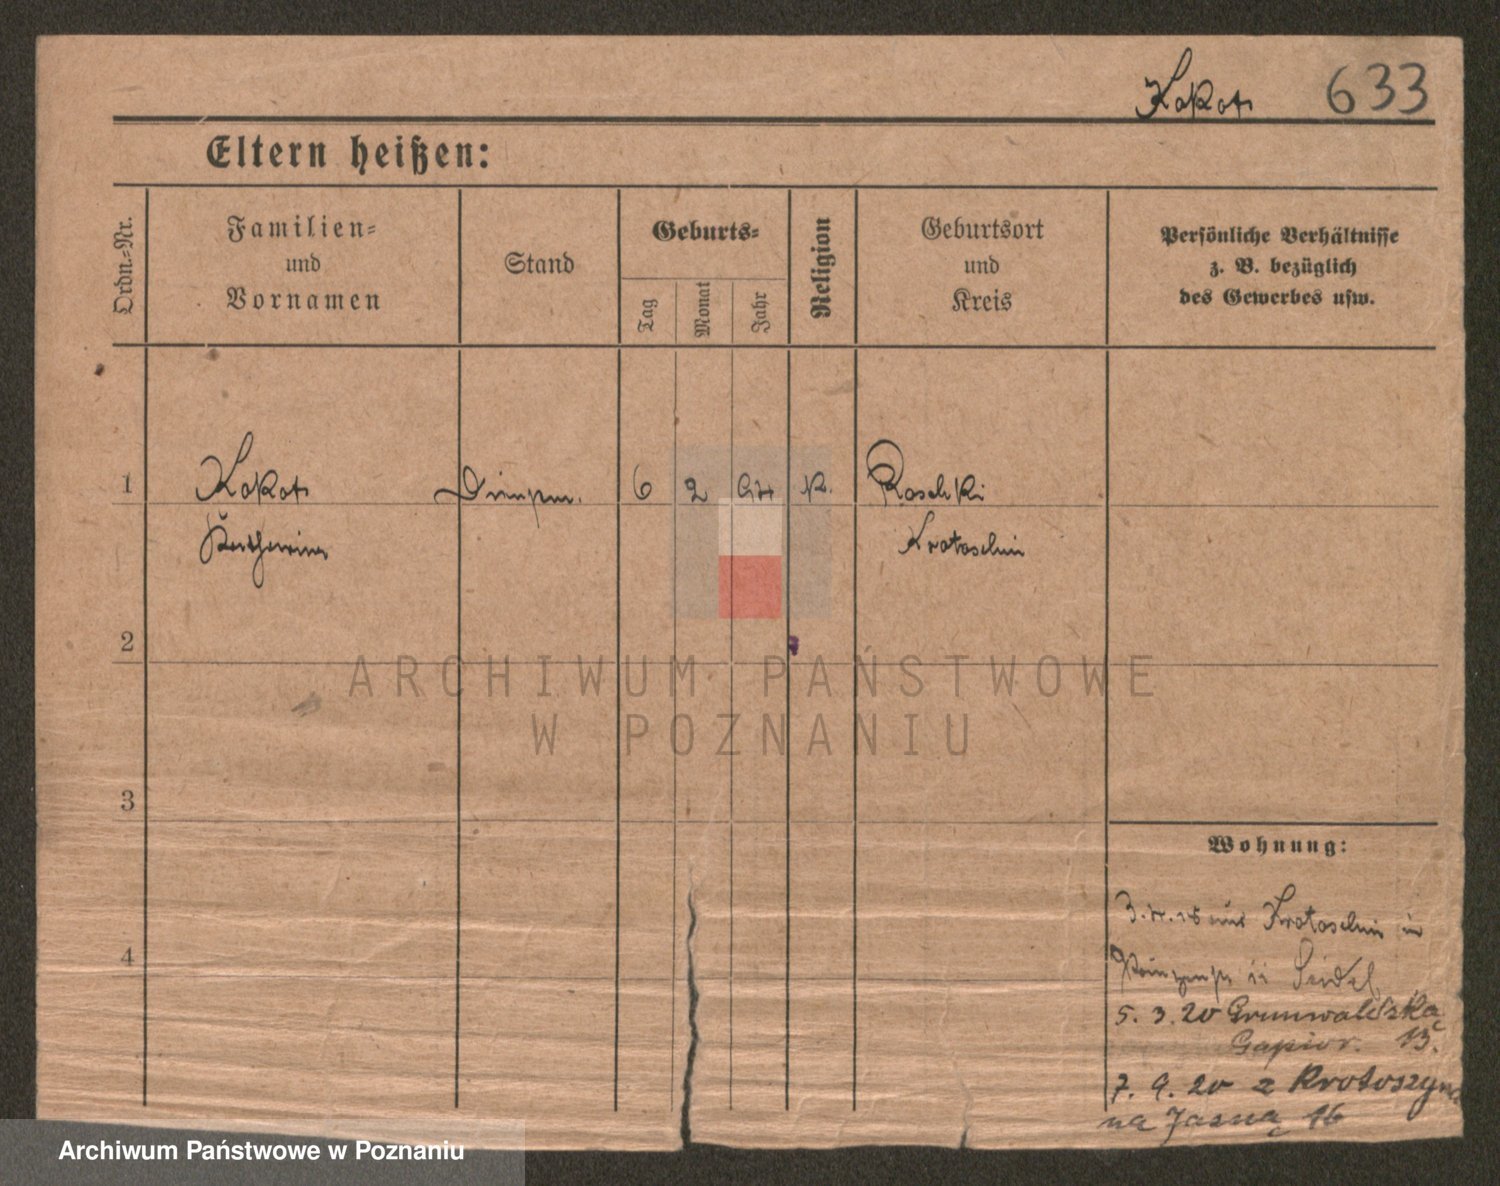 Kokot 633
Eltern heißen:
Ordn.-Nr.
Familien=
und
Vornamen
Stand
Geburts=
Tag
Monat
Jahr
Religion
Geburtsort
und
Kreis
Persönliche Verhältnisse
z. B. bezüglich
des Gewerbes usw.
1 Kokot 6 2 K. Roschki
Katharina Krotoschin
2
ARCHIWUM PAŃSTWOWE
W POZNANIU
3
Wohnung:
aus Krotoschin in
4
Seidel
5. 3. 20 Grunwaldzka
Gapior. 13.
7. 9. 20 z Krotoszyna
na Jasną 16
Archiwum Państwowe w Poznaniu